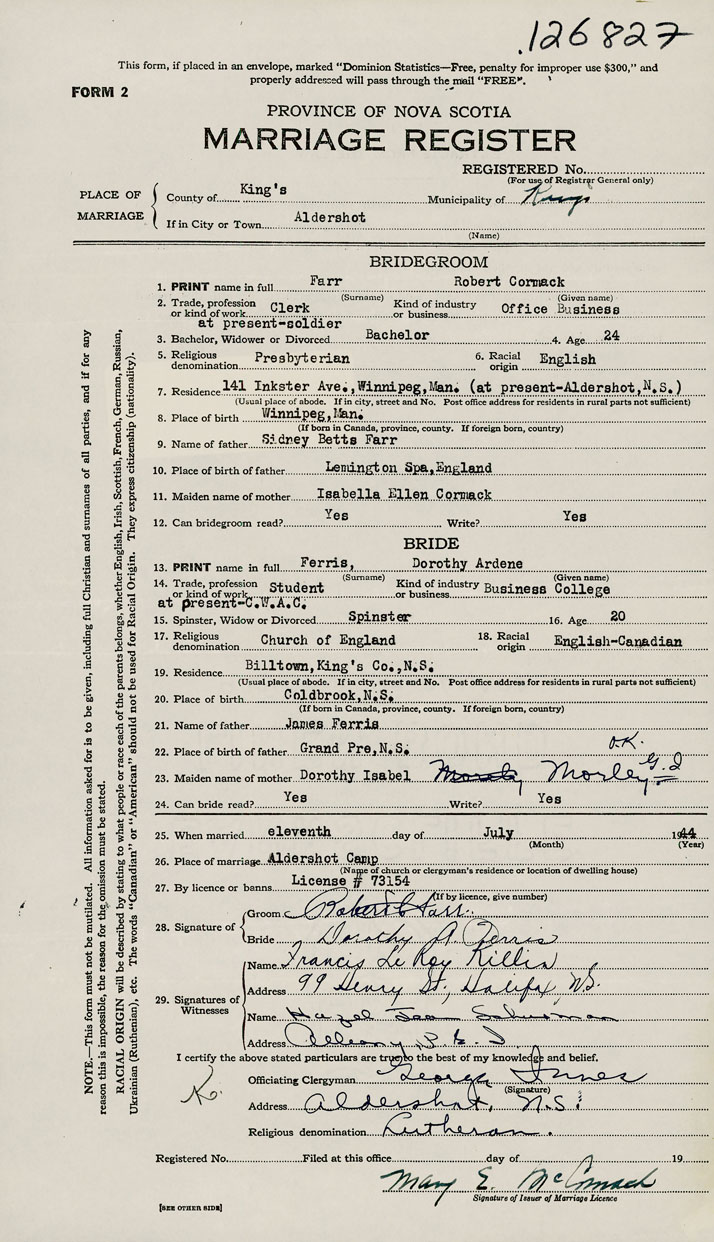 126827
This form, if placed in an envelope, marked "Dominion Statistics—Free, penalty for improper use $300," and
properly addressed will pass through the mail "FREE".
FORM 2
PROVINCE OF NOVA SCOTIA
MARRIAGE REGISTER
REGISTERED No.
(For use of Registrar General only)
PLACE OF MARRIAGE
County of King's Municipality of Kings
If in City or Town Aldershot
(Name)
BRIDEGROOM
1. PRINT name in full Farr Robert Cormack
(Surname) (Given name)
2. Trade, profession or kind of work Clerk Kind of industry or business Office Business
at present-soldier
3. Bachelor, Widower or Divorced Bachelor 4. Age 24
5. Religious denomination Presbyterian 6. Racial origin English
7. Residence 141 Inkster Ave., Winnipeg, Man. (at present-Aldershot, N.S.)
(Usual place of abode. If in city, street and No. Post office address for residents in rural parts not sufficient)
8. Place of birth Winnipeg, Man.
(If born in Canada, province, county. If foreign born, country)
9. Name of father Sidney Betts Farr
10. Place of birth of father Lemington Spa, England
11. Maiden name of mother Isabella Ellen Cormack
12. Can bridegroom read? Yes Write? Yes
BRIDE
13. PRINT name in full Ferris, Dorothy Ardene
(Surname) (Given name)
14. Trade, profession or kind of work Student Kind of industry or business Business College
at present-C.W.A.C.
15. Spinster, Widow or Divorced Spinster 16. Age 20
17. Religious denomination Church of England 18. Racial origin English-Canadian
19. Residence Billtown, King's Co., N.S.
(Usual place of abode. If in city, street and No. Post office address for residents in rural parts not sufficient)
20. Place of birth Coldbrook, N.S.
(If born in Canada, province, county. If foreign born, country)
21. Name of father James Ferris
22. Place of birth of father Grand Pre, N.S.
O.K.
23. Maiden name of mother Dorothy Isabel Morley G.I
24. Can bride read? Yes Write? Yes
25. When married eleventh day of July 1944
(Month) (Year)
26. Place of marriage Aldershot Camp
(Name of church or clergyman's residence or location of dwelling house)
27. By licence or banns License # 73154
(If by licence, give number)
28. Signature of
Groom Robert C Farr
Bride Dorothy A. Ferris
29. Signatures of Witnesses
Name Francis Le Roy Killin
Address 99 Henry St., Halifax, NS.
Name Hazel Jean
Address
I certify the above stated particulars are true to the best of my knowledge and belief.
Officiating Clergyman George Innes
(Signature)
Address Aldershot, N.S.
Religious denomination Lutheran.
Registered No. Filed at this office day of 19
Mary E. McCormack
Signature of Issuer of Marriage Licence
[SEE OTHER SIDE]
NOTE.—This form must not be mutilated. All information asked for is to be given, including full Christian and surnames of all parties, and if for any
reason this is impossible, the reason for the omission must be stated.
RACIAL ORIGIN will be described by stating to what people or race each of the parents belongs, whether English, Irish, Scottish, French, German, Russian,
Ukrainian (Ruthenian), etc. The words "Canadian" or "American" should not be used for Racial Origin. They express citizenship (nationality).